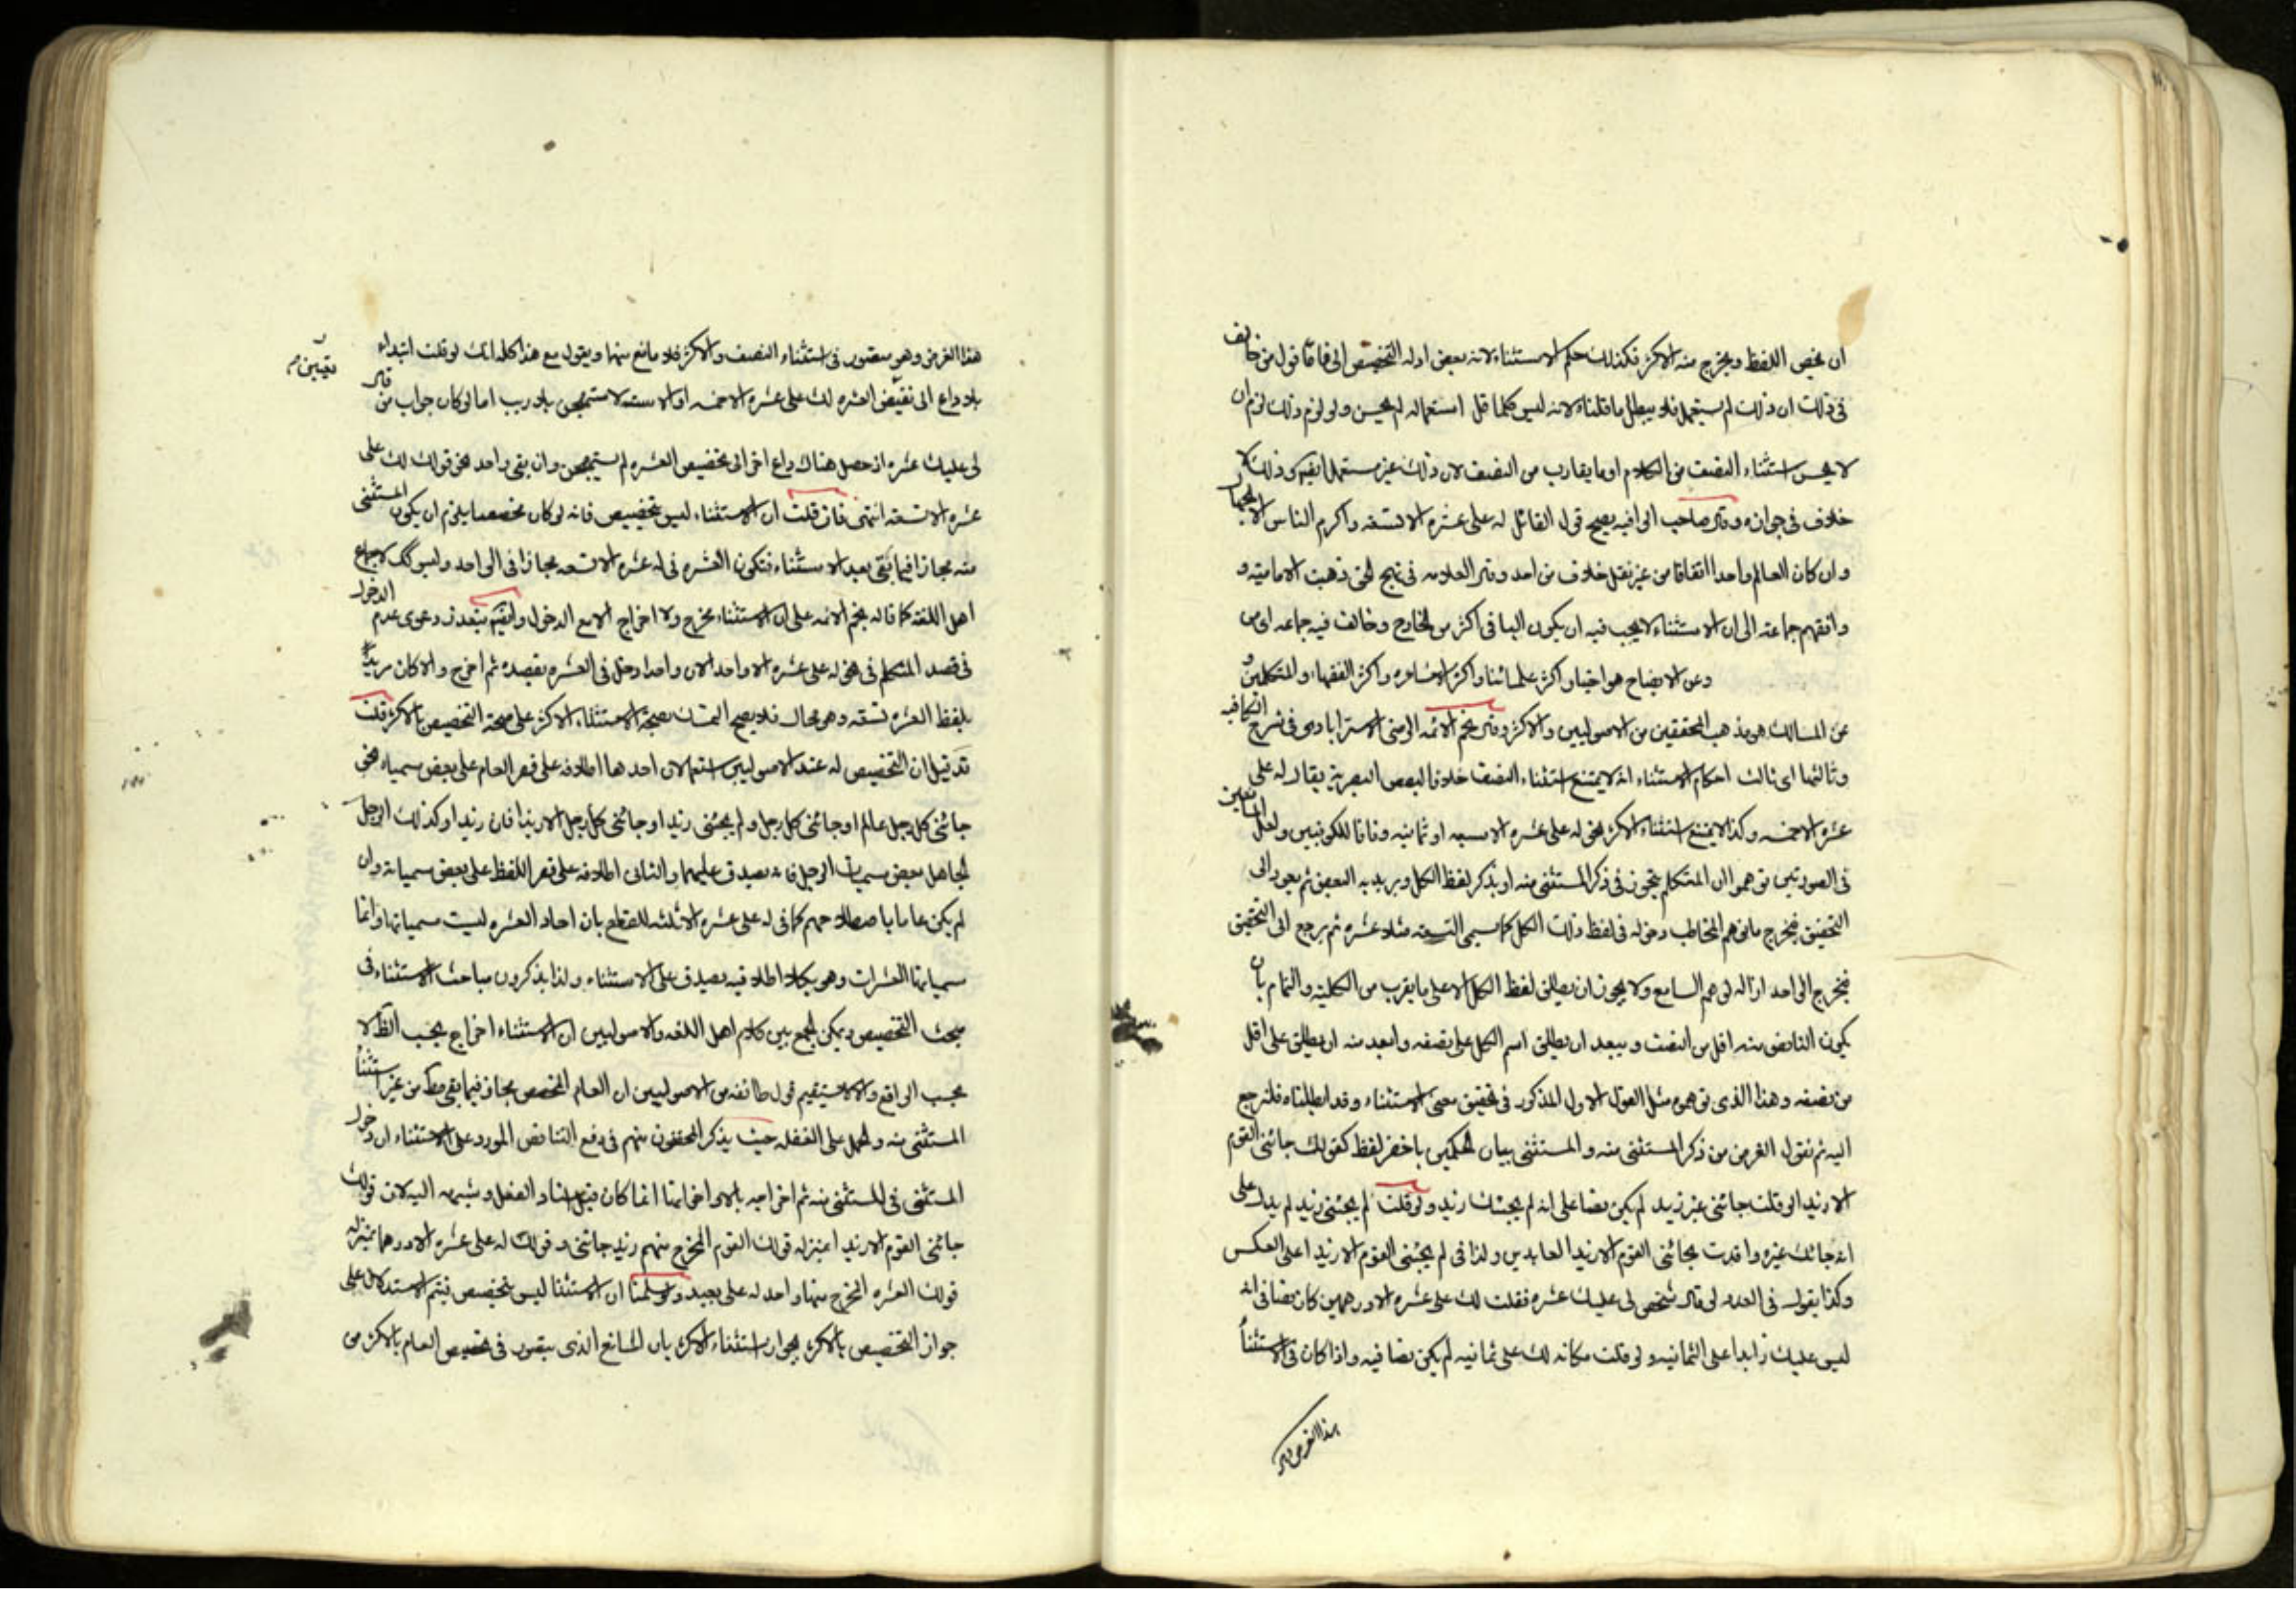 ان يخص اللفظ ويخرج منه الاكثر فكذلك حكم الاستثناء لانه بعض ادله التخصيص الى فاقا قول من خالف
فى ذلك ان ذلك لم يستعمل فلا يبطل ما قلناه لانه ليس كلما قل استعماله لم يحسن ولو لزم ذلك لزم ان
لا يحسن استثناء النصف من الكلام او ما يقارب من النصف لان ذلك غير مستعمل ايضا وذلك لا
خلاف فى جوازه وقال صاحب الوافيه يصح قول القائل له على عشره الا تسعه واكرم الناس الا الجهال
وان كان العالم واحدا اتفاقا من غير نقل خلاف من احد وقال العلامه فى نهج الحق ذهبت الاماميه و
وافقهم جماعة الى ان الاستثناء لا يجب فيه ان يكون الباقى اكثر من الخارج وخالف فيه جماعه
وعن الايضاح هو اختيار اكثر علمائنا واكثر الاشاعره واكثر الفقهاء والمتكلمين و
عن المسالك هو مذهب المحققين من الاصوليين والاكثر وقال نجم الائمه الرضى الاسترابادى فى شرح الكافيه
وثالثها اى ثالث احكام الاستثناء انه لا يمتنع استثناء النصف خلافا لبعض البصرية يقال له على
عشره الا خمسه وكذا لا يمتنع استثناء الاكثر نحو له على عشره الا سبعه او ثمانيه وفاقا للكوفيين ولعل المانعين
فى الصورتين توهموا ان المتكلم يتجوز فى ذكر المستثنى منه او يذكر لفظ الكل ويريد به البعض ثم يعود الى
التحقيق فيخرج ما توهم المخاطب دخوله فى لفظ ذلك الكل كما يسمى التسعه مثلا عشره ثم يرجع الى التحقيق
فيخرج الواحد ازاله لوهم السامع ولا يجوز ان يطلق لفظ الكل الا على ما يقرب من الكلية والتمام بان
يكون الناقص منه اقل من النصف ويبعد ان يطلق اسم الكل على نصفه وابعد منه ان يطلق على اقل
من نصفه وهذا الذى توهموه مثل القول الاول المذكور فى تحقيق معنى الاستثناء وقد ابطلناه فلنرجع
اليه ثم نقول الغرض من ذكر المستثنى منه والمستثنى بيان الحكمين باخصر لفظ كقولك جائنى القوم
الا زيدا لو قلت جائنى غير زيد لم يكن نصا على انه لم يجئك زيد ولو قلت لم يجئنى زيد لم يدل على
انه جائك غيره وافدت بجائنى القوم الا زيدا الفايدتين ولذا فى لم يجئنى القوم الا زيدا على العكس
وكذا يقول فى العدد لو قال شخص لى عليك عشره فقلت لك على عشره الا درهمين كان نصا فى انه
ليس عليك زايدا على الثمانيه ولو قلت مكانه لك على ثمانيه لم يكن نصا فيه واذا كان فى الاستثناء
هذا الغرض
هذا الغرض وهو متصور فى استثناء النصف والاكثر فلا مانع منها ويقول مع هذا كله انك لو قلت ابتداء
بلا داع الى نقيض العشره لك على عشره الا خمسه او الا سته لاستهجن بلا ريب اما لو كان جواب من قال
لى عليك عشره اذ حصل هناك داع اخر الى تخصيص العشره لم يستهجن وان بقى واحد نحو قولك لك على
عشره الا تسعه انتهى فان قلت ان الاستثناء ليس بتخصيص فانه لو كان تخصيصا يلزم ان يكون المستثنى
منه مجازا فيما بقى بعد الاستثناء فتكون العشره فى له عشره الا تسعه مجازا فى الواحد وليس كك لاجماع
اهل اللغة كما قاله نجم الائمه على ان الاستثناء مخرج ولا اخراج الا مع الدخول وايضا يتعذر دعوى عدم الدخول
فى قصد المتكلم فى نحو له على عشره الا واحد الان واحدا دخل فى العشره بقصده ثم اخرج والا كان مريدا
بلفظ العشره تسعه وهو محال فلا يصح التمسك بصحة الاستثناء الاكثر على صحة التخصيص بالاكثر قلت
قد قيل ان التخصيص له عند الاصوليين استعمالان احدها اطلاقه على قصر العام على بعض مسمياه نحو
جائنى كل رجل عالم او جائنى كل رجل ولم يجئنى زيد او جائنى كل رجل الا زيدا فان زيدا وكذلك الرجل
الجاهل بعض مسميات الرجل فانه يصدق عليهما والثانى اطلاقه على قصر اللفظ على بعض مسمياته وان
لم يكن عاما باصطلاحهم كما فى له على عشره الا ثلثه للقطع بان احاد العشره ليست مسمياتها وانما
مسمياتها العشرات وهو بكلا اطلاقيه يصدق على الاستثناء ولذا يذكرون مباحث الاستثناء فى
مبحث التخصيص ويمكن الجمع بين كلام اهل اللغه والاصوليين ان الاستثناء اخراج بحسب الظ لا
بحسب الواقع والا لا يستقيم قول طائفه من الاصوليين ان العام المخصص مجاز فيما بقى مط من غير استثناء
المستثنى منه والحمل على الغفله حيث يذكر المحققون منهم فى دفع التناقض المورد على الاستثناء ان دخول
المستثنى فى المستثنى منه ثم اخراجه بالا واخواتها انما كان قبل اسناد الفعل وشبهه اليه لان قولك
جائنى القوم الا زيدا بمنزله قولك القوم المخرج منهم زيد جائنى وقولك له على عشره الا درهما بمنزله
قولك العشره المخرج منها واحد له على بعيد ولو سلمنا ان الاستثنا ليس بتخصيص فيتم الاستدلال على
جواز التخصيص بالاكثر بجواز استثناء الاكثر بان المانع الذى يتصور فى تخصيص العام بالاكثر من